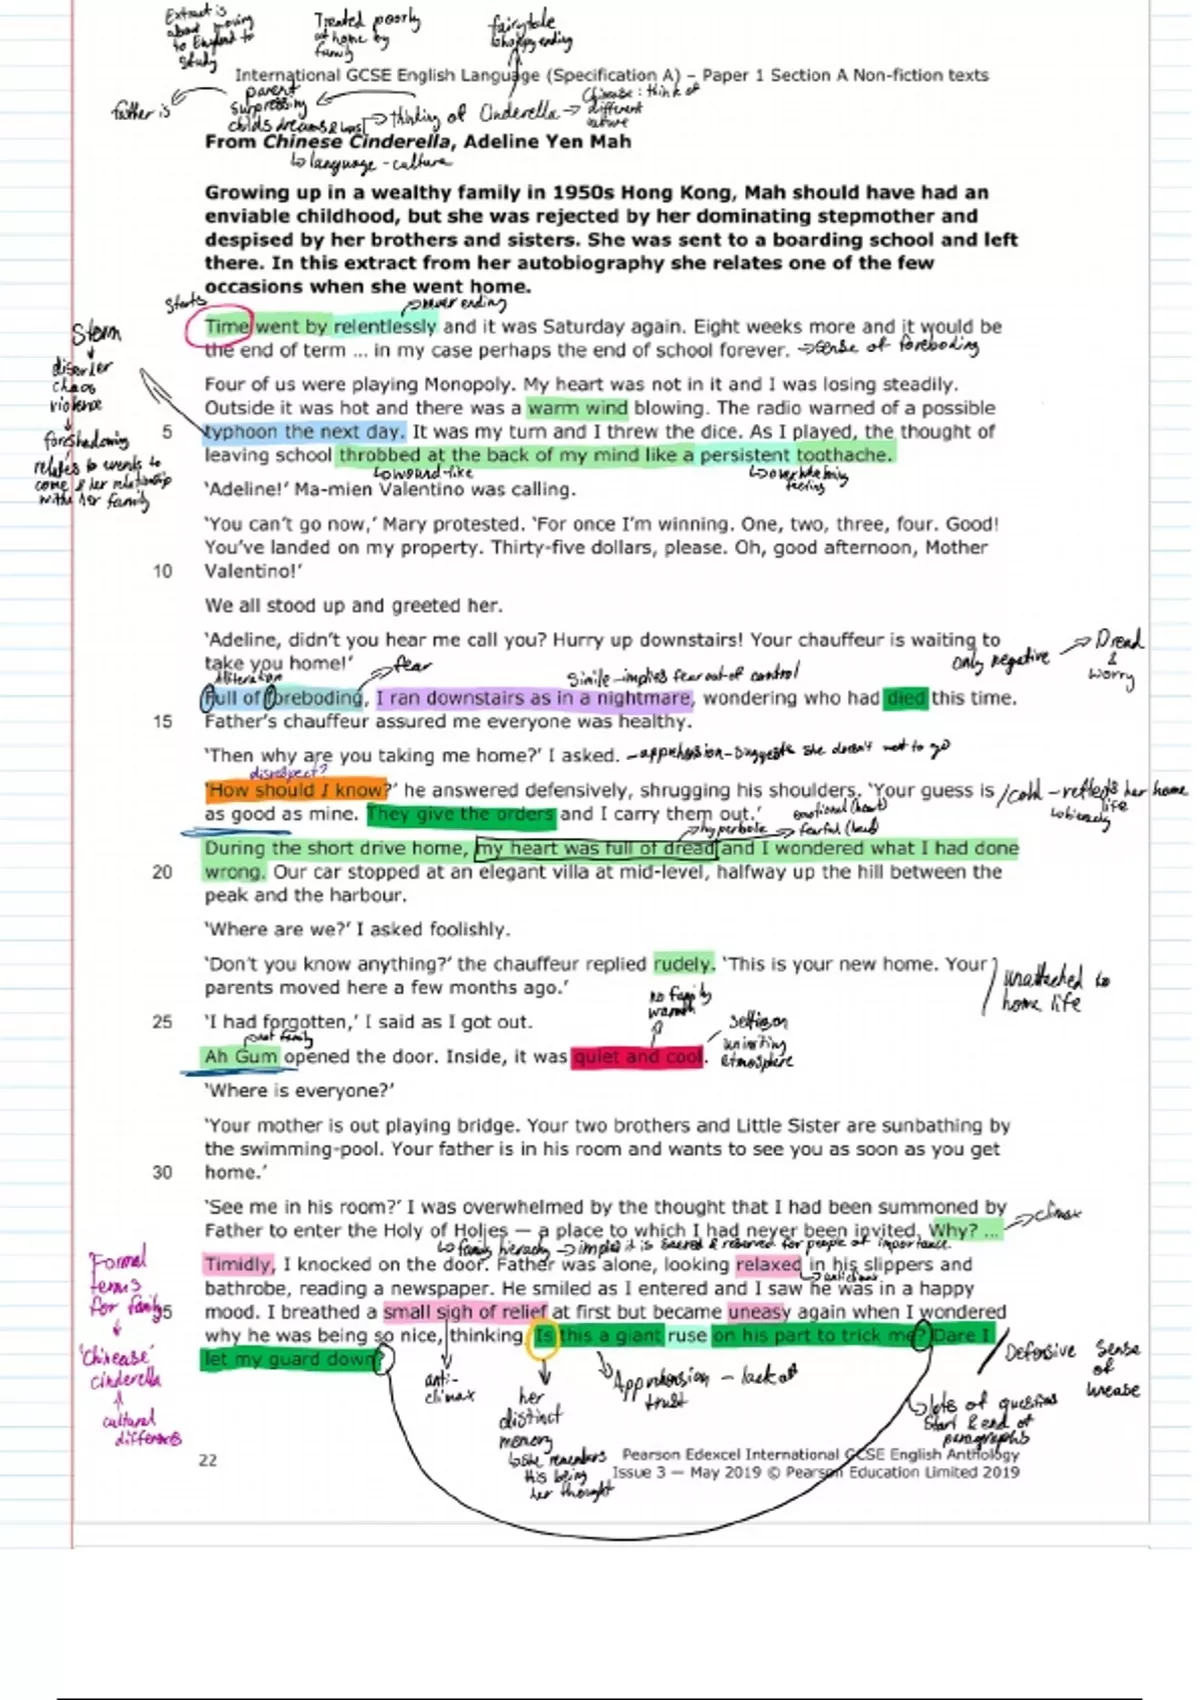 Extract is
about moving
to England to
study
Treated poorly
at home by
family
fairytale
happy ending
International GCSE English Language (Specification A) – Paper 1 Section A Non-fiction texts
father is
parent
surpressing
childs dreams &
thinking of Cinderella →
Chinease: think of
different
culture
From Chinese Cinderella, Adeline Yen Mah
language - culture
Growing up in a wealthy family in 1950s Hong Kong, Mah should have had an
enviable childhood, but she was rejected by her dominating stepmother and
despised by her brothers and sisters. She was sent to a boarding school and left
there. In this extract from her autobiography she relates one of the few
occasions when she went home.
Starts
never ending
Time went by relentlessly and it was Saturday again. Eight weeks more and it would be
the end of term ... in my case perhaps the end of school forever.
→ sense of foreboding
Storm
disorder
chaos
violence
foreshadowing
relates to events to
come & her relationship
with her family
Four of us were playing Monopoly. My heart was not in it and I was losing steadily.
Outside it was hot and there was a warm wind blowing. The radio warned of a possible
5 typhoon the next day. It was my turn and I threw the dice. As I played, the thought of
leaving school throbbed at the back of my mind like a persistent toothache.
wound-like
overwhelming
feeling
‘Adeline!’ Ma-mien Valentino was calling.
‘You can’t go now,’ Mary protested. ‘For once I’m winning. One, two, three, four. Good!
You’ve landed on my property. Thirty-five dollars, please. Oh, good afternoon, Mother
10 Valentino!’
We all stood up and greeted her.
‘Adeline, didn’t you hear me call you? Hurry up downstairs! Your chauffeur is waiting to
take you home!’
alliteration
fear
Simile - implies fear out of control
only negative
Dread
&
worry
Full of foreboding, I ran downstairs as in a nightmare, wondering who had died this time.
15 Father’s chauffeur assured me everyone was healthy.
‘Then why are you taking me home?’ I asked.
- apprehension - suggests she doesn't want to go
disrespect?
‘How should I know?’ he answered defensively, shrugging his shoulders. ‘Your guess is
as good as mine. They give the orders and I carry them out.’
cold - reflects her home
life
emotional (heart)
hyperbole → fearful (head)
During the short drive home, my heart was full of dread and I wondered what I had done
20 wrong. Our car stopped at an elegant villa at mid-level, halfway up the hill between the
peak and the harbour.
‘Where are we?’ I asked foolishly.
‘Don’t you know anything?’ the chauffeur replied rudely. ‘This is your new home. Your
parents moved here a few months ago.’
unattached to
home life
no family
warmth
25 ‘I had forgotten,’ I said as I got out.
not family
setting
uninviting
atmosphere
Ah Gum opened the door. Inside, it was quiet and cool.
‘Where is everyone?’
‘Your mother is out playing bridge. Your two brothers and Little Sister are sunbathing by
the swimming-pool. Your father is in his room and wants to see you as soon as you get
30 home.’
‘See me in his room?’ I was overwhelmed by the thought that I had been summoned by
Father to enter the Holy of Holies — a place to which I had never been invited. Why? ...
climax
family hierachy → implies it is sacred & reserved for people of importance.
Timidly, I knocked on the door. Father was alone, looking relaxed in his slippers and
anticlimax
bathrobe, reading a newspaper. He smiled as I entered and I saw he was in a happy
35 mood. I breathed a small sigh of relief at first but became uneasy again when I wondered
why he was being so nice, thinking, Is this a giant ruse on his part to trick me? Dare I
let my guard down?
'Formal
terms
for family
'Chinease'
cinderella
cultural
differences
anti-
climax
her
distinct
memory
she remembers
this being
her thought
Apprehension - lack of
trust
Defensive
sense
of
unease
lots of questions
start & end of
paragraphs
22
Pearson Edexcel International GCSE English Anthology
Issue 3 — May 2019 © Pearson Education Limited 2019